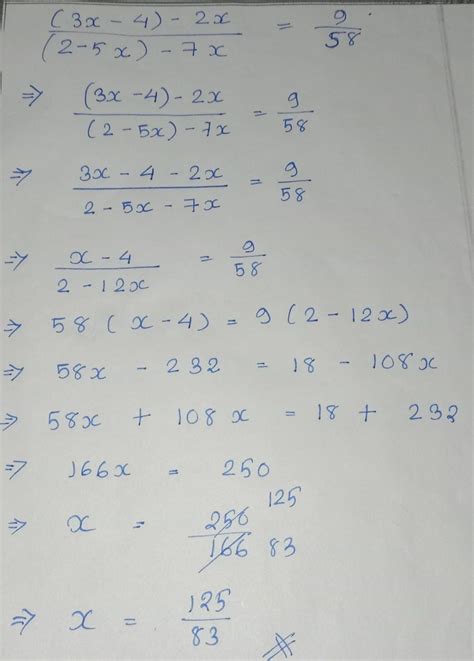 (3x - 4) - 2x / (2 - 5x) - 7x = 9/58
⇒ (3x - 4) - 2x / (2 - 5x) - 7x = 9/58
⇒ 3x - 4 - 2x / 2 - 5x - 7x = 9/58
⇒ x - 4 / 2 - 12x = 9/58
⇒ 58 (x - 4) = 9 (2 - 12x)
⇒ 58x - 232 = 18 - 108x
⇒ 58x + 108x = 18 + 232
⇒ 166x = 250
⇒ x = 250/166 125/83
⇒ x = 125/83